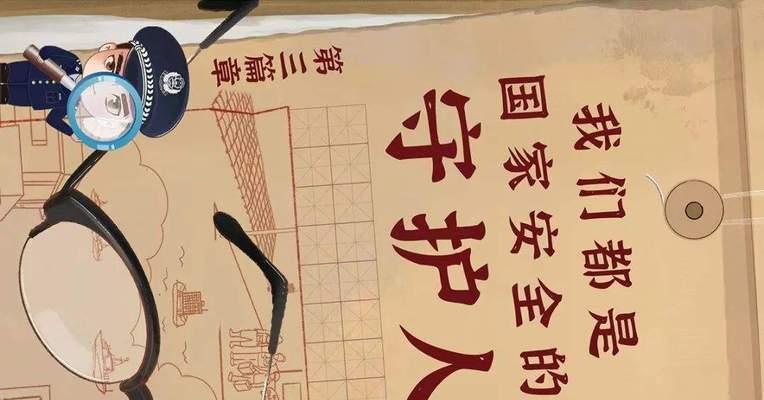 我们都是
国家安全的
守护人
第三篇章